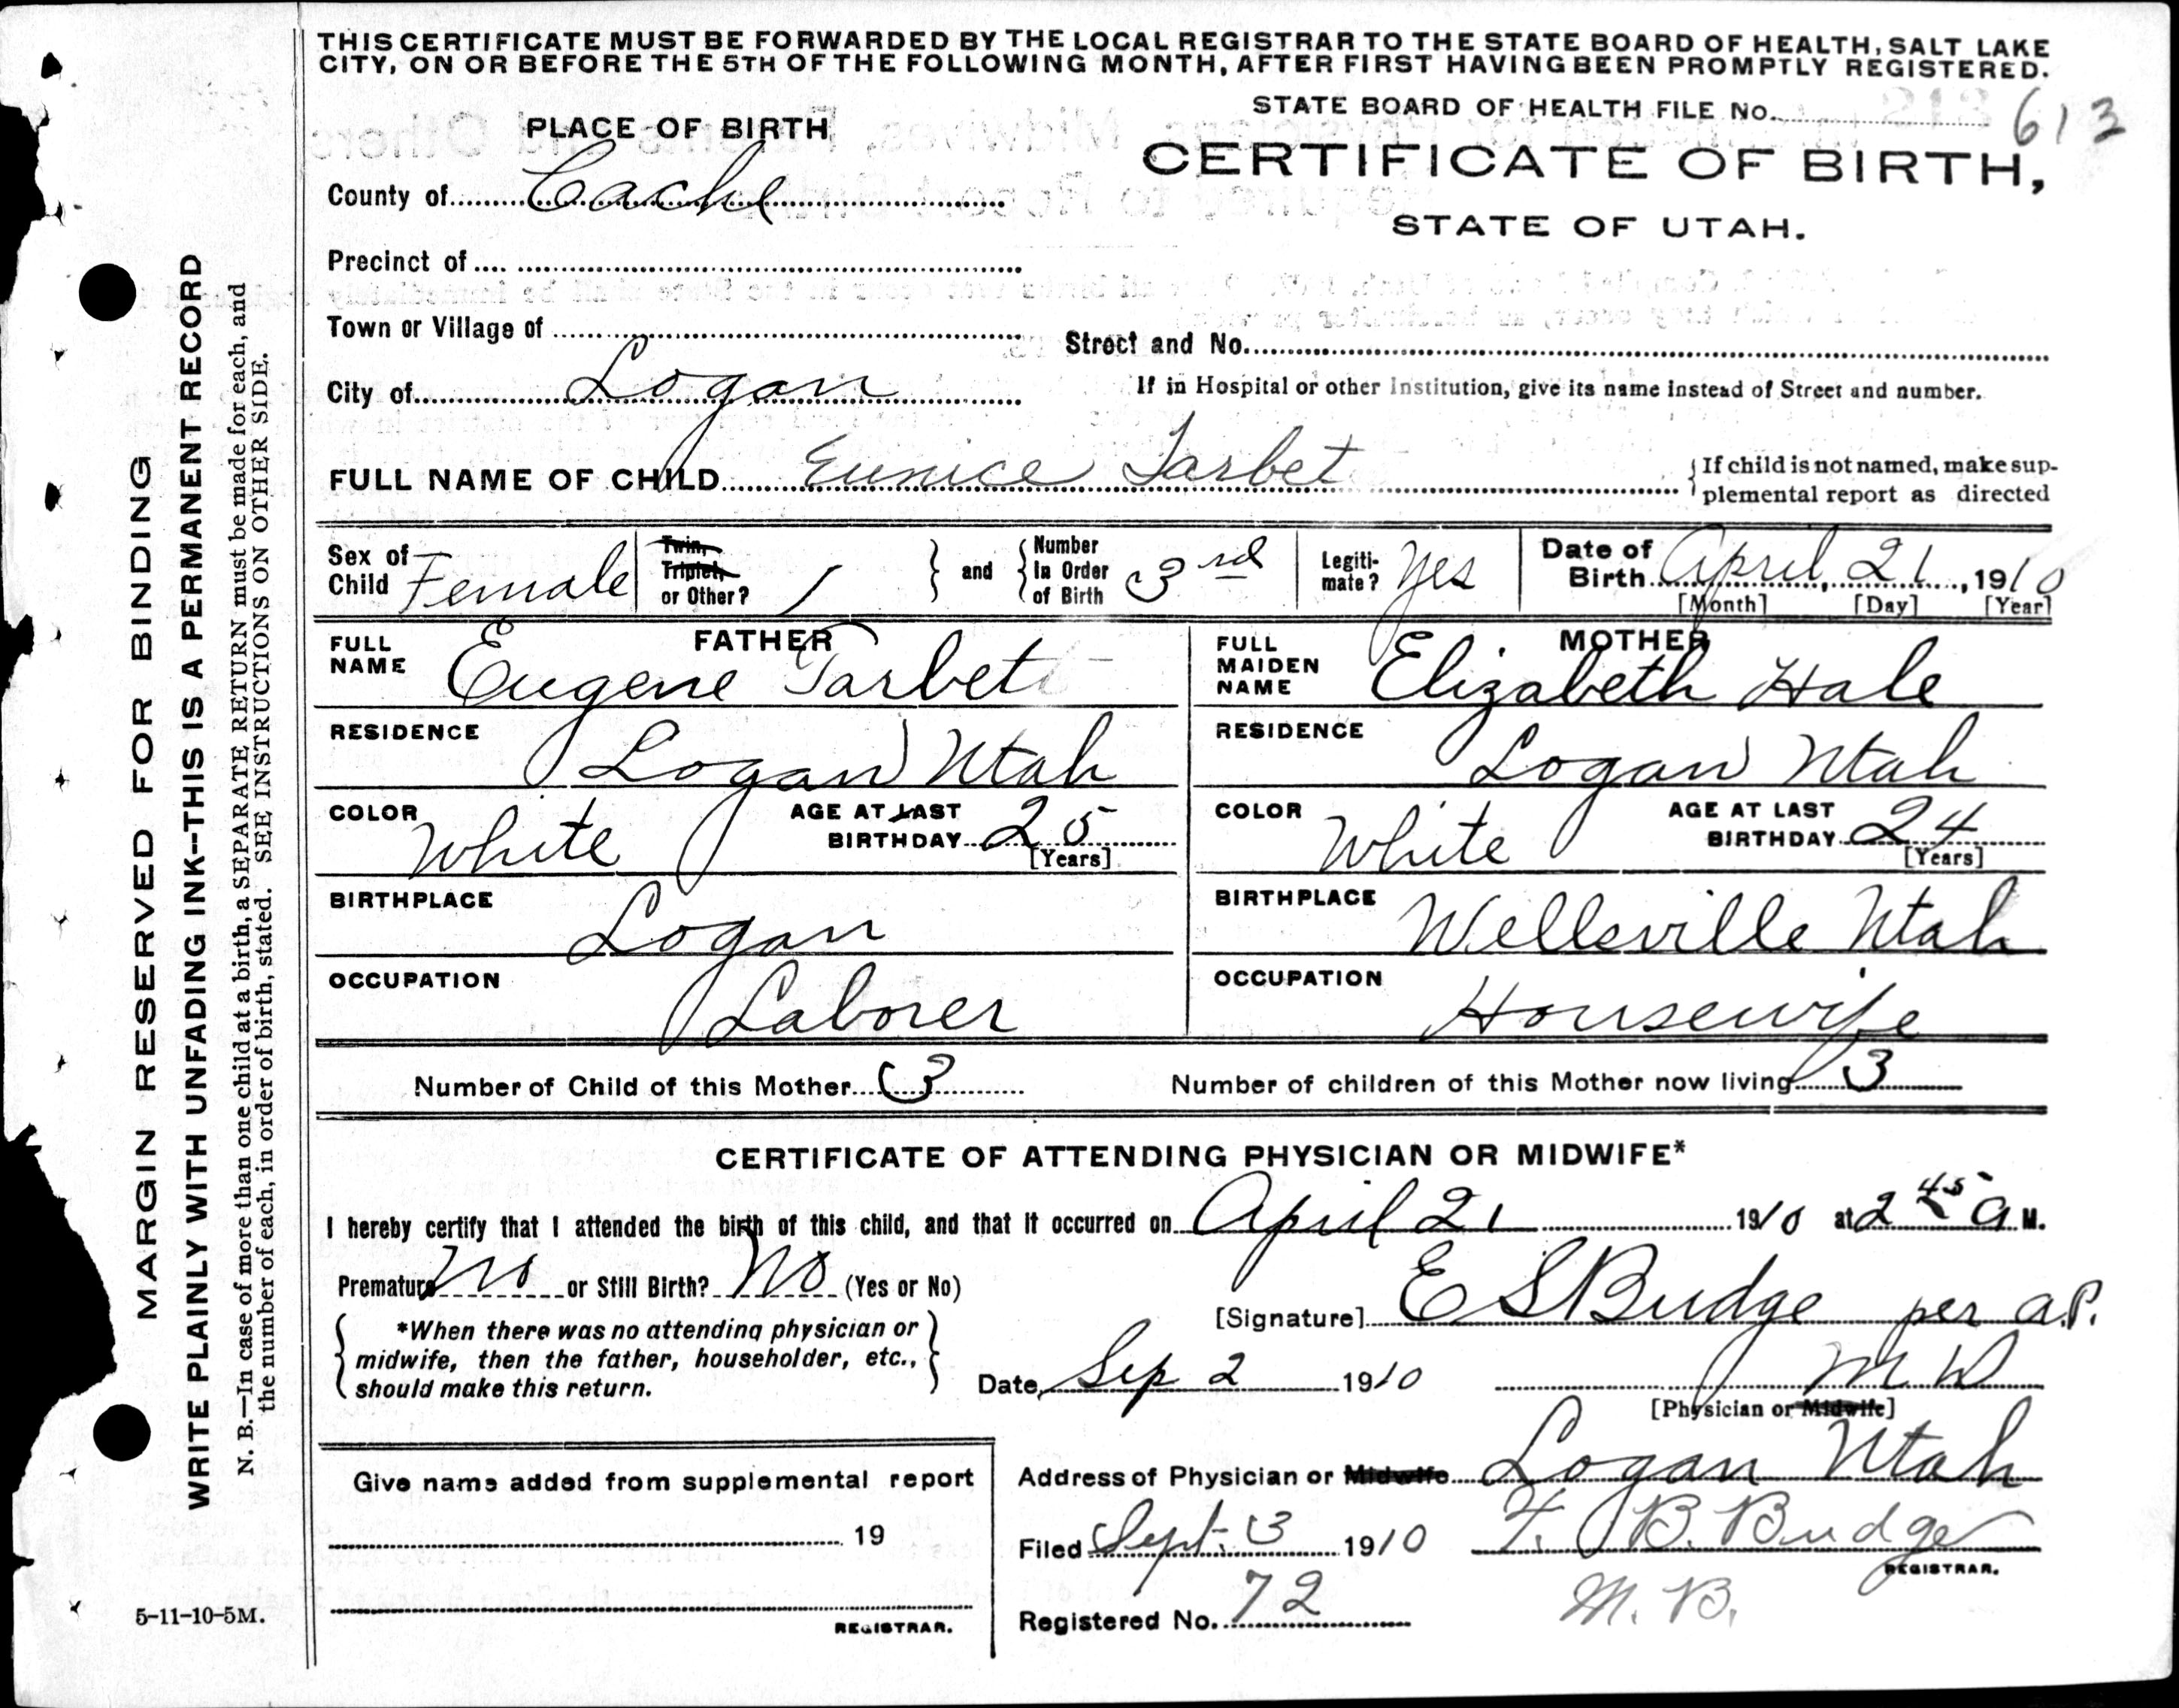 THIS CERTIFICATE MUST BE FORWARDED BY THE LOCAL REGISTRAR TO THE STATE BOARD OF HEALTH, SALT LAKE
CITY, ON OR BEFORE THE 5TH OF THE FOLLOWING MONTH, AFTER FIRST HAVING BEEN PROMPTLY REGISTERED.
STATE BOARD OF HEALTH FILE No. 613
PLACE OF BIRTH
CERTIFICATE OF BIRTH,
County of Cache
STATE OF UTAH.
Precinct of
Town or Village of
Street and No.
City of Logan
If in Hospital or other Institution, give its name instead of Street and number.
FULL NAME OF CHILD Eunice Tarbet
{ If child is not named, make sup-
plemental report as directed
Sex of Child Female
Twin, Triplet, or Other? 1 } and { Number in Order of Birth 3rd
Legiti-mate? Yes
Date of Birth April, 21, 1910
[Month] [Day] [Year]
FATHER
FULL NAME Eugene Tarbet
MOTHER
FULL MAIDEN NAME Elizabeth Hale
RESIDENCE Logan Utah
RESIDENCE Logan Utah
COLOR White AGE AT LAST BIRTHDAY 25 [Years]
COLOR White AGE AT LAST BIRTHDAY 24 [Years]
BIRTHPLACE Logan
BIRTHPLACE Wellsville Utah
OCCUPATION Laborer
OCCUPATION Housewife
Number of Child of this Mother 3 Number of children of this Mother now living 3
CERTIFICATE OF ATTENDING PHYSICIAN OR MIDWIFE*
I hereby certify that I attended the birth of this child, and that it occurred on April 21 1910 at 2 45 a M.
Premature no or Still Birth? No (Yes or No)
[Signature] E S Budge per a.P.
{ *When there was no attending physician or
midwife, then the father, householder, etc.,
should make this return. }
Date, Sep 2 1910 M D
[Physician or Midwife]
Address of Physician or Midwife Logan Utah
Give name added from supplemental report
19
REGISTRAR.
Filed Sept. 3 1910 F. B. Budge
REGISTRAR.
Registered No. 72 M. B.
MARGIN RESERVED FOR BINDING
WRITE PLAINLY WITH UNFADING INK--THIS IS A PERMANENT RECORD
N. B.—In case of more than one child at a birth, a SEPARATE RETURN must be made for each, and
the number of each, in order of birth, stated. SEE INSTRUCTIONS ON OTHER SIDE.
5-11-10-5M.